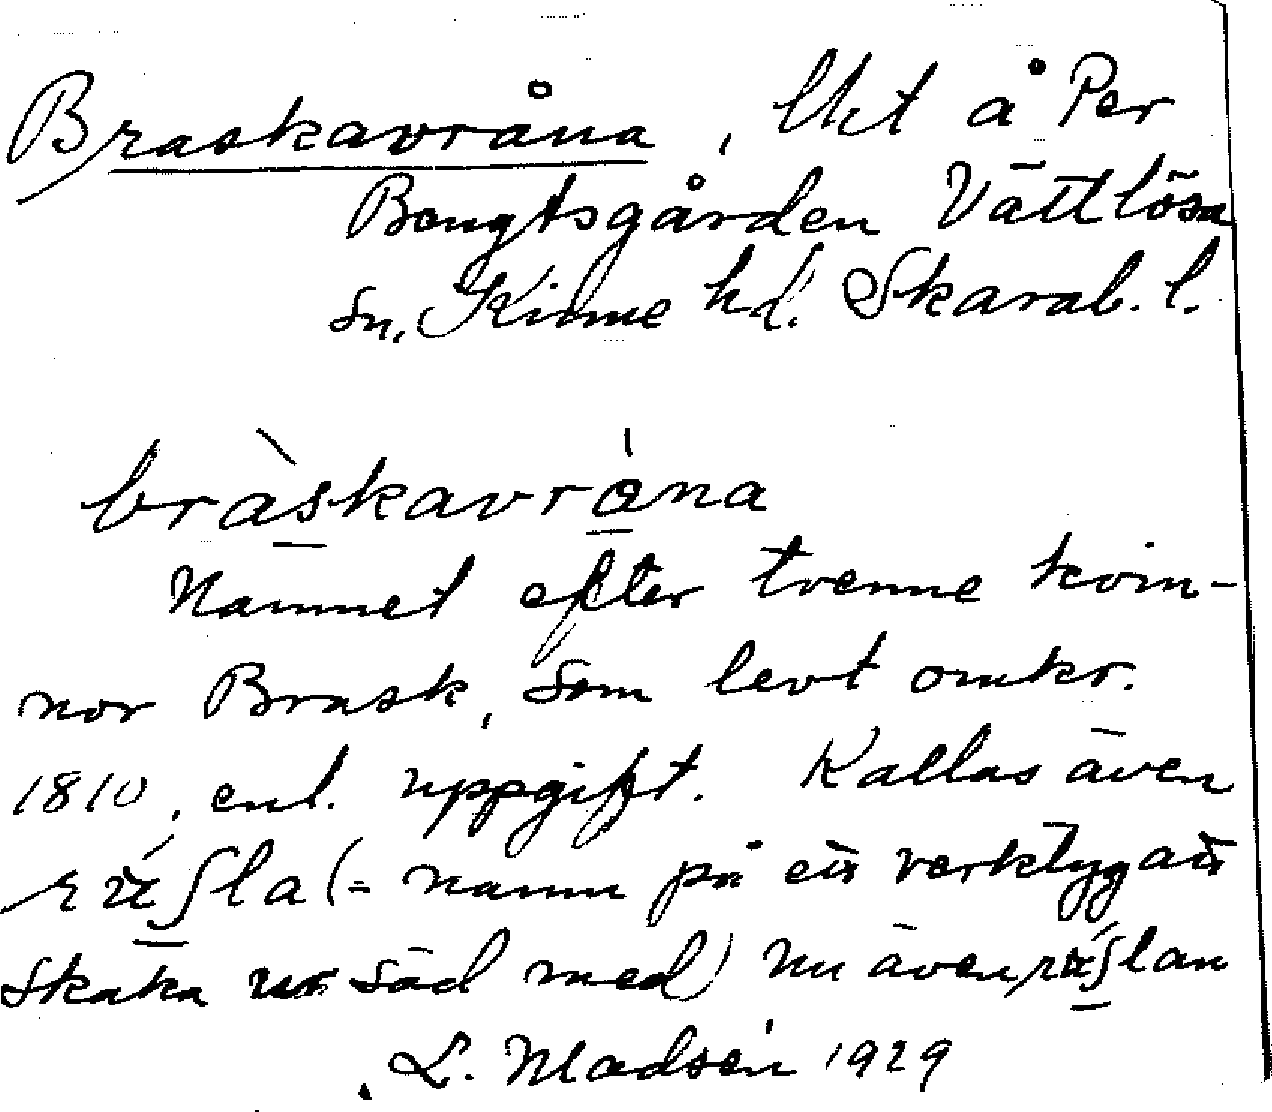 Braskavråna, lkt å Per
Bengtsgården Vättlösa
sn, Kinne hd. Skarab. l.
bràskavrána
Namnet efter tvenne kvin-
nor Brask, som levt omkr.
1810, enl. uppgift. Kallas även
(= namn på ett verktyg att
skaka ur säd med) nu även
L. Madsén 1929